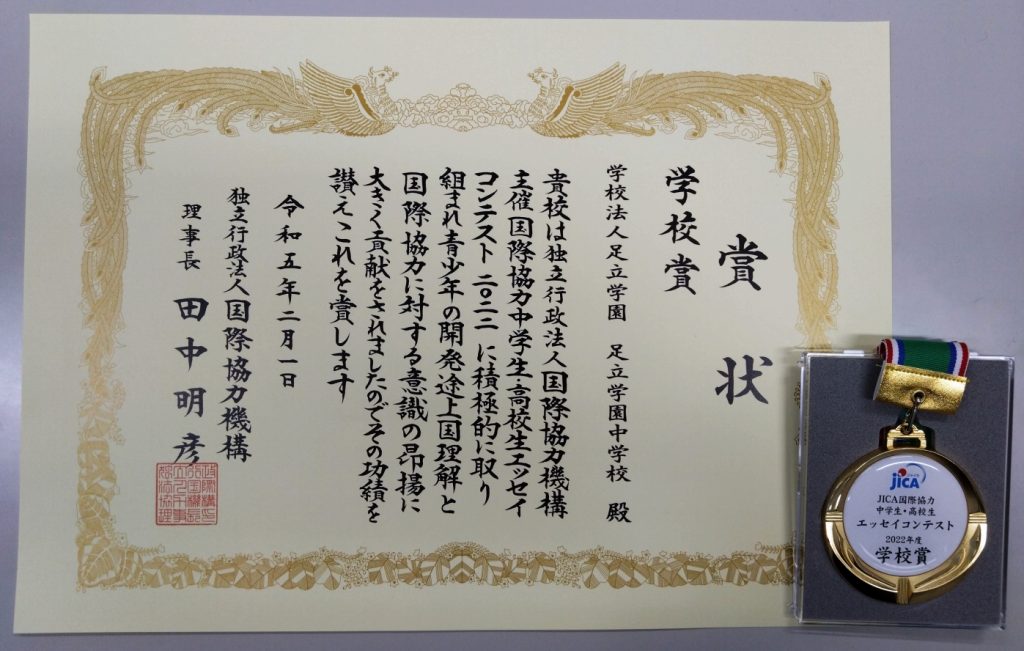 賞状
学校賞
学校法人足立学園 足立学園中学校 殿
貴校は独立行政法人国際協力機構
主催国際協力中学生・高校生エッセイ
コンテスト二〇二二に積極的に取り
組まれ青少年の開発途上国理解と
国際協力に対する意識の昂揚に
大きく貢献をされましたのでその功績を
讃えこれを賞します
令和五年二月一日
独立行政法人国際協力機構
理事長 田中明彦
JICA
JICA国際協力
中学生・高校生
エッセイコンテスト
2022年度
学校賞